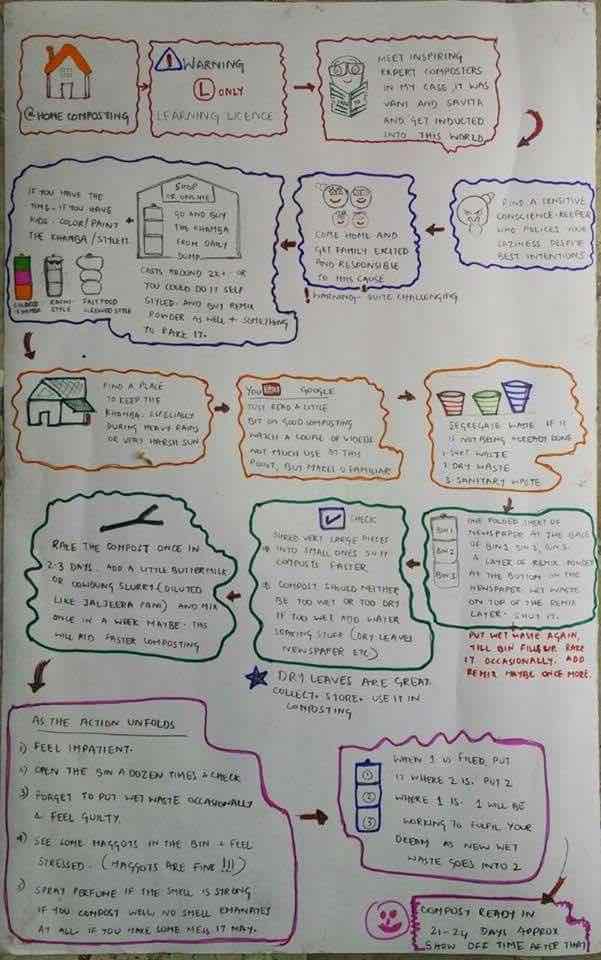 @HOME COMPOSTING
WARNING
L ONLY
LEARNING LICENCE
MEET INSPIRING
EXPERT COMPOSTERS
IN MY CASE, IT WAS
VANI AND SAVITA
AND GET INDUCTED
INTO THIS WORLD
FIND A SENSITIVE
CONSCIENCE-KEEPER
WHO POLICES YOUR
LAZINESS DESPITE
BEST INTENTIONS
COME HOME AND
GET FAMILY EXCITED
AND RESPONSIBLE
TO THIS CAUSE
! WARNING - QUITE CHALLENGING
SHOP
OR ONLINE
GO AND BUY
THE KHAMBA
FROM DAILY
DUMP
COSTS AROUND 2K+ OR
YOU COULD DO IT SELF
STYLED. AND BUY REMIX
POWDER AS WELL + SOMETHING
TO RAKE IT.
IF YOU HAVE THE
TIME - IF YOU HAVE
KIDS - COLOR/PAINT
THE KHAMBA/STYLE IT
COLORED
KHAMBA
STYLE
STYLE
FIND A PLACE
TO KEEP THE
KHAMBA. ESPECIALLY
DURING HEAVY RAINS
OR VERY HARSH SUN
YOU TUBE GOOGLE
JUST READ A LITTLE
BIT ON GOOD COMPOSTING
WATCH A COUPLE OF VIDEOS
NOT MUCH USE AT THIS
POINT, BUT MAKES U FAMILIAR
SEGREGATE WASTE IF IT
IS NOT BEING ALREADY DONE
1. WET WASTE
2. DRY WASTE
3. SANITARY WASTE
BIN 1
BIN 2
BIN 3
ONE FOLDED SHEET OF
NEWSPAPER AT THE BASE
OF BIN 1 BIN 2, BIN 3.
A LAYER OF REMIX POWDER
AT THE BOTTOM ON THE
NEWSPAPER WET WASTE
ON TOP OF THE REMIX
LAYER. SHUT IT.
PUT WET WASTE AGAIN,
TILL BIN FILLS UP RAKE
IT OCCASIONALLY. ADD
REMIX MAYBE ONCE MORE.
CHECK
SHRED VERY LARGE PIECES
INTO SMALL ONES SO IT
COMPOSTS FASTER
COMPOST SHOULD NEITHER
BE TOO WET OR TOO DRY
IF TOO WET ADD WATER
SOAKING STUFF (DRY LEAVES
NEWSPAPER ETC)
DRY LEAVES ARE GREAT
COLLECT. STORE. USE IT IN
COMPOSTING
RAKE THE COMPOST ONCE IN
2-3 DAYS. ADD A LITTLE BUTTERMILK
OR COWDUNG SLURRY (DILUTED
LIKE JALJEERA PANI) AND MIX
ONCE IN A WEEK MAYBE. THIS
WILL AID FASTER COMPOSTING
AS THE ACTION UNFOLDS
1) FEEL IMPATIENT.
2) OPEN THE BIN A DOZEN TIMES & CHECK
3) FORGET TO PUT WET WASTE OCCASIONALLY
& FEEL GUILTY.
4) SEE SOME MAGGOTS IN THE BIN + FEEL
STRESSED. (MAGGOTS ARE FINE !!!)
5) SPRAY PERFUME IF THE SMELL IS STRONG
IF YOU COMPOST WELL NO SMELL EMANATES
AT ALL IF YOU MAKE SOME MESS IT MAY.
1
2
3
WHEN 1 IS FILLED, PUT
IT WHERE 2 IS. PUT 2
WHERE 1 IS. 1 WILL BE
WORKING TO FULFIL YOUR
DREAM AS NEW WET
WASTE GOES INTO 2
COMPOST READY IN
21-24 DAYS APPROX
SHOW OFF TIME AFTER THAT